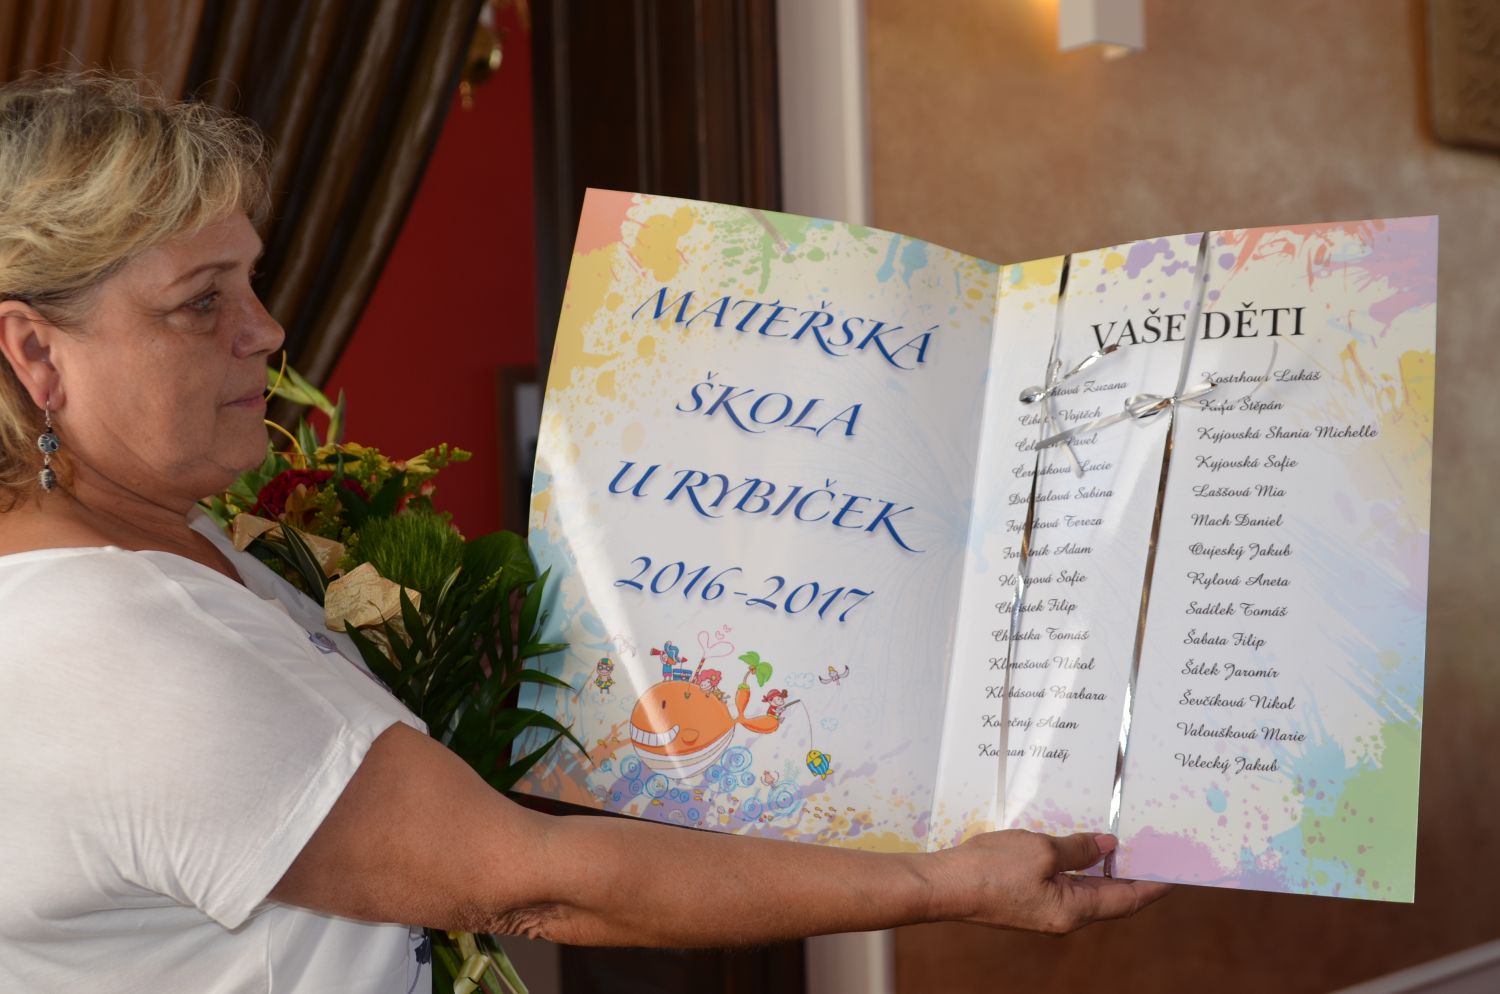 MATEŘSKÁ
ŠKOLA
U RYBIČEK
2016-2017
VAŠE DĚTI
Zuzana
Vojtěch
Pavel
Čermáková Lucie
Doležalová Sabina
Tereza
Adam
Sofie
Filip
Tomáš
Klimešová Nikol
Klobásová Barbara
Konečný Adam
Matěj
Lukáš
Štěpán
Kyjovská Shania Michelle
Kyjovská Sofie
Laššová Mia
Mach Daniel
Oujeský Jakub
Rylová Aneta
Sadílek Tomáš
Šabata Filip
Šálek Jaromír
Ševčíková Nikol
Valoušková Marie
Velecký Jakub